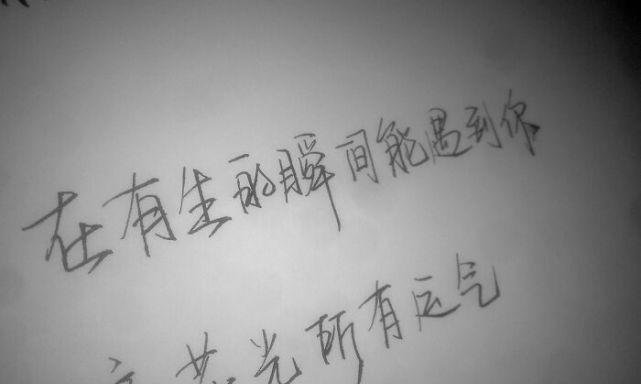 在有生的瞬间能遇到你
花光所有运气